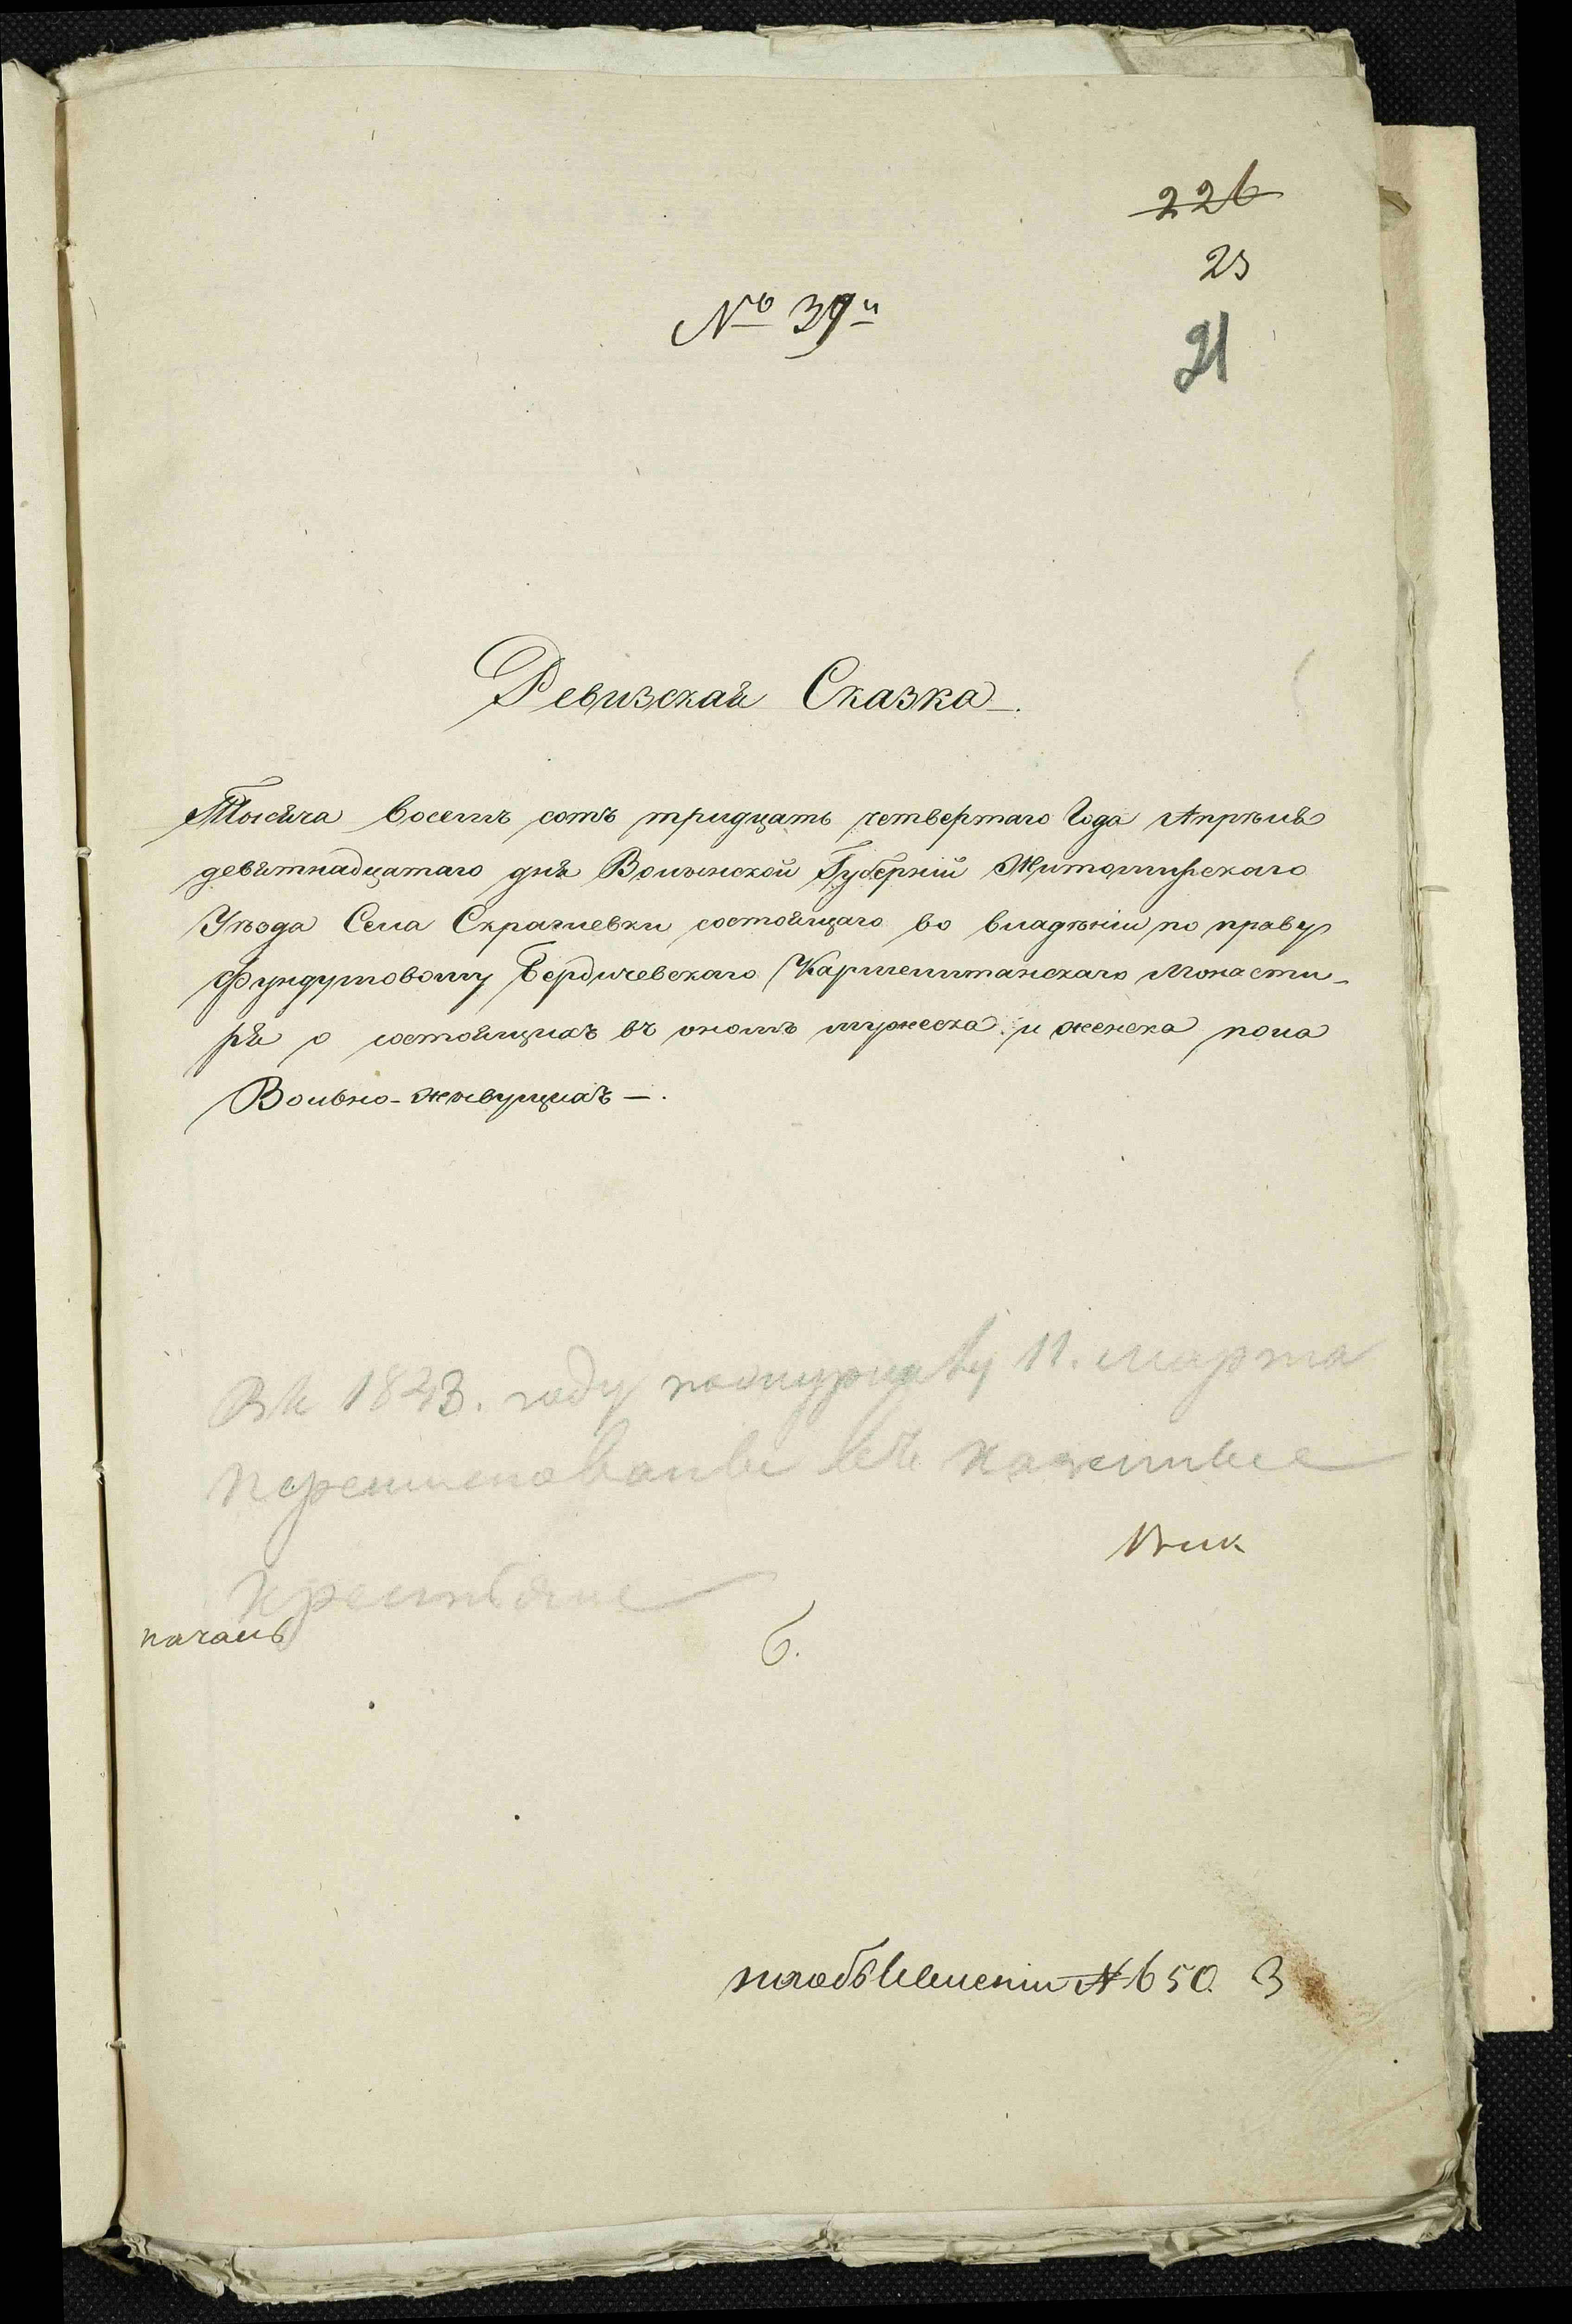 226
23
№ 39й
21
Ревизская Сказка.
Тысяча восемъ сотъ тридцать четвертаго Года Апрѣля
девятнадцатаго дня Волынской Губерніи Житомирскаго
Уѣзда Села Скраглевки состоящаго во владѣніи по праву
Фундушовому Бердичевскаго Кармелитанскаго Монасти-
ря о состоящихъ въ ономъ мужеска и женска пола
Вольно-живущихъ —.
Въ 1843. году 11. Марта
переименованы въ казенные
крестьяне
началъ
6.
№ 650. З